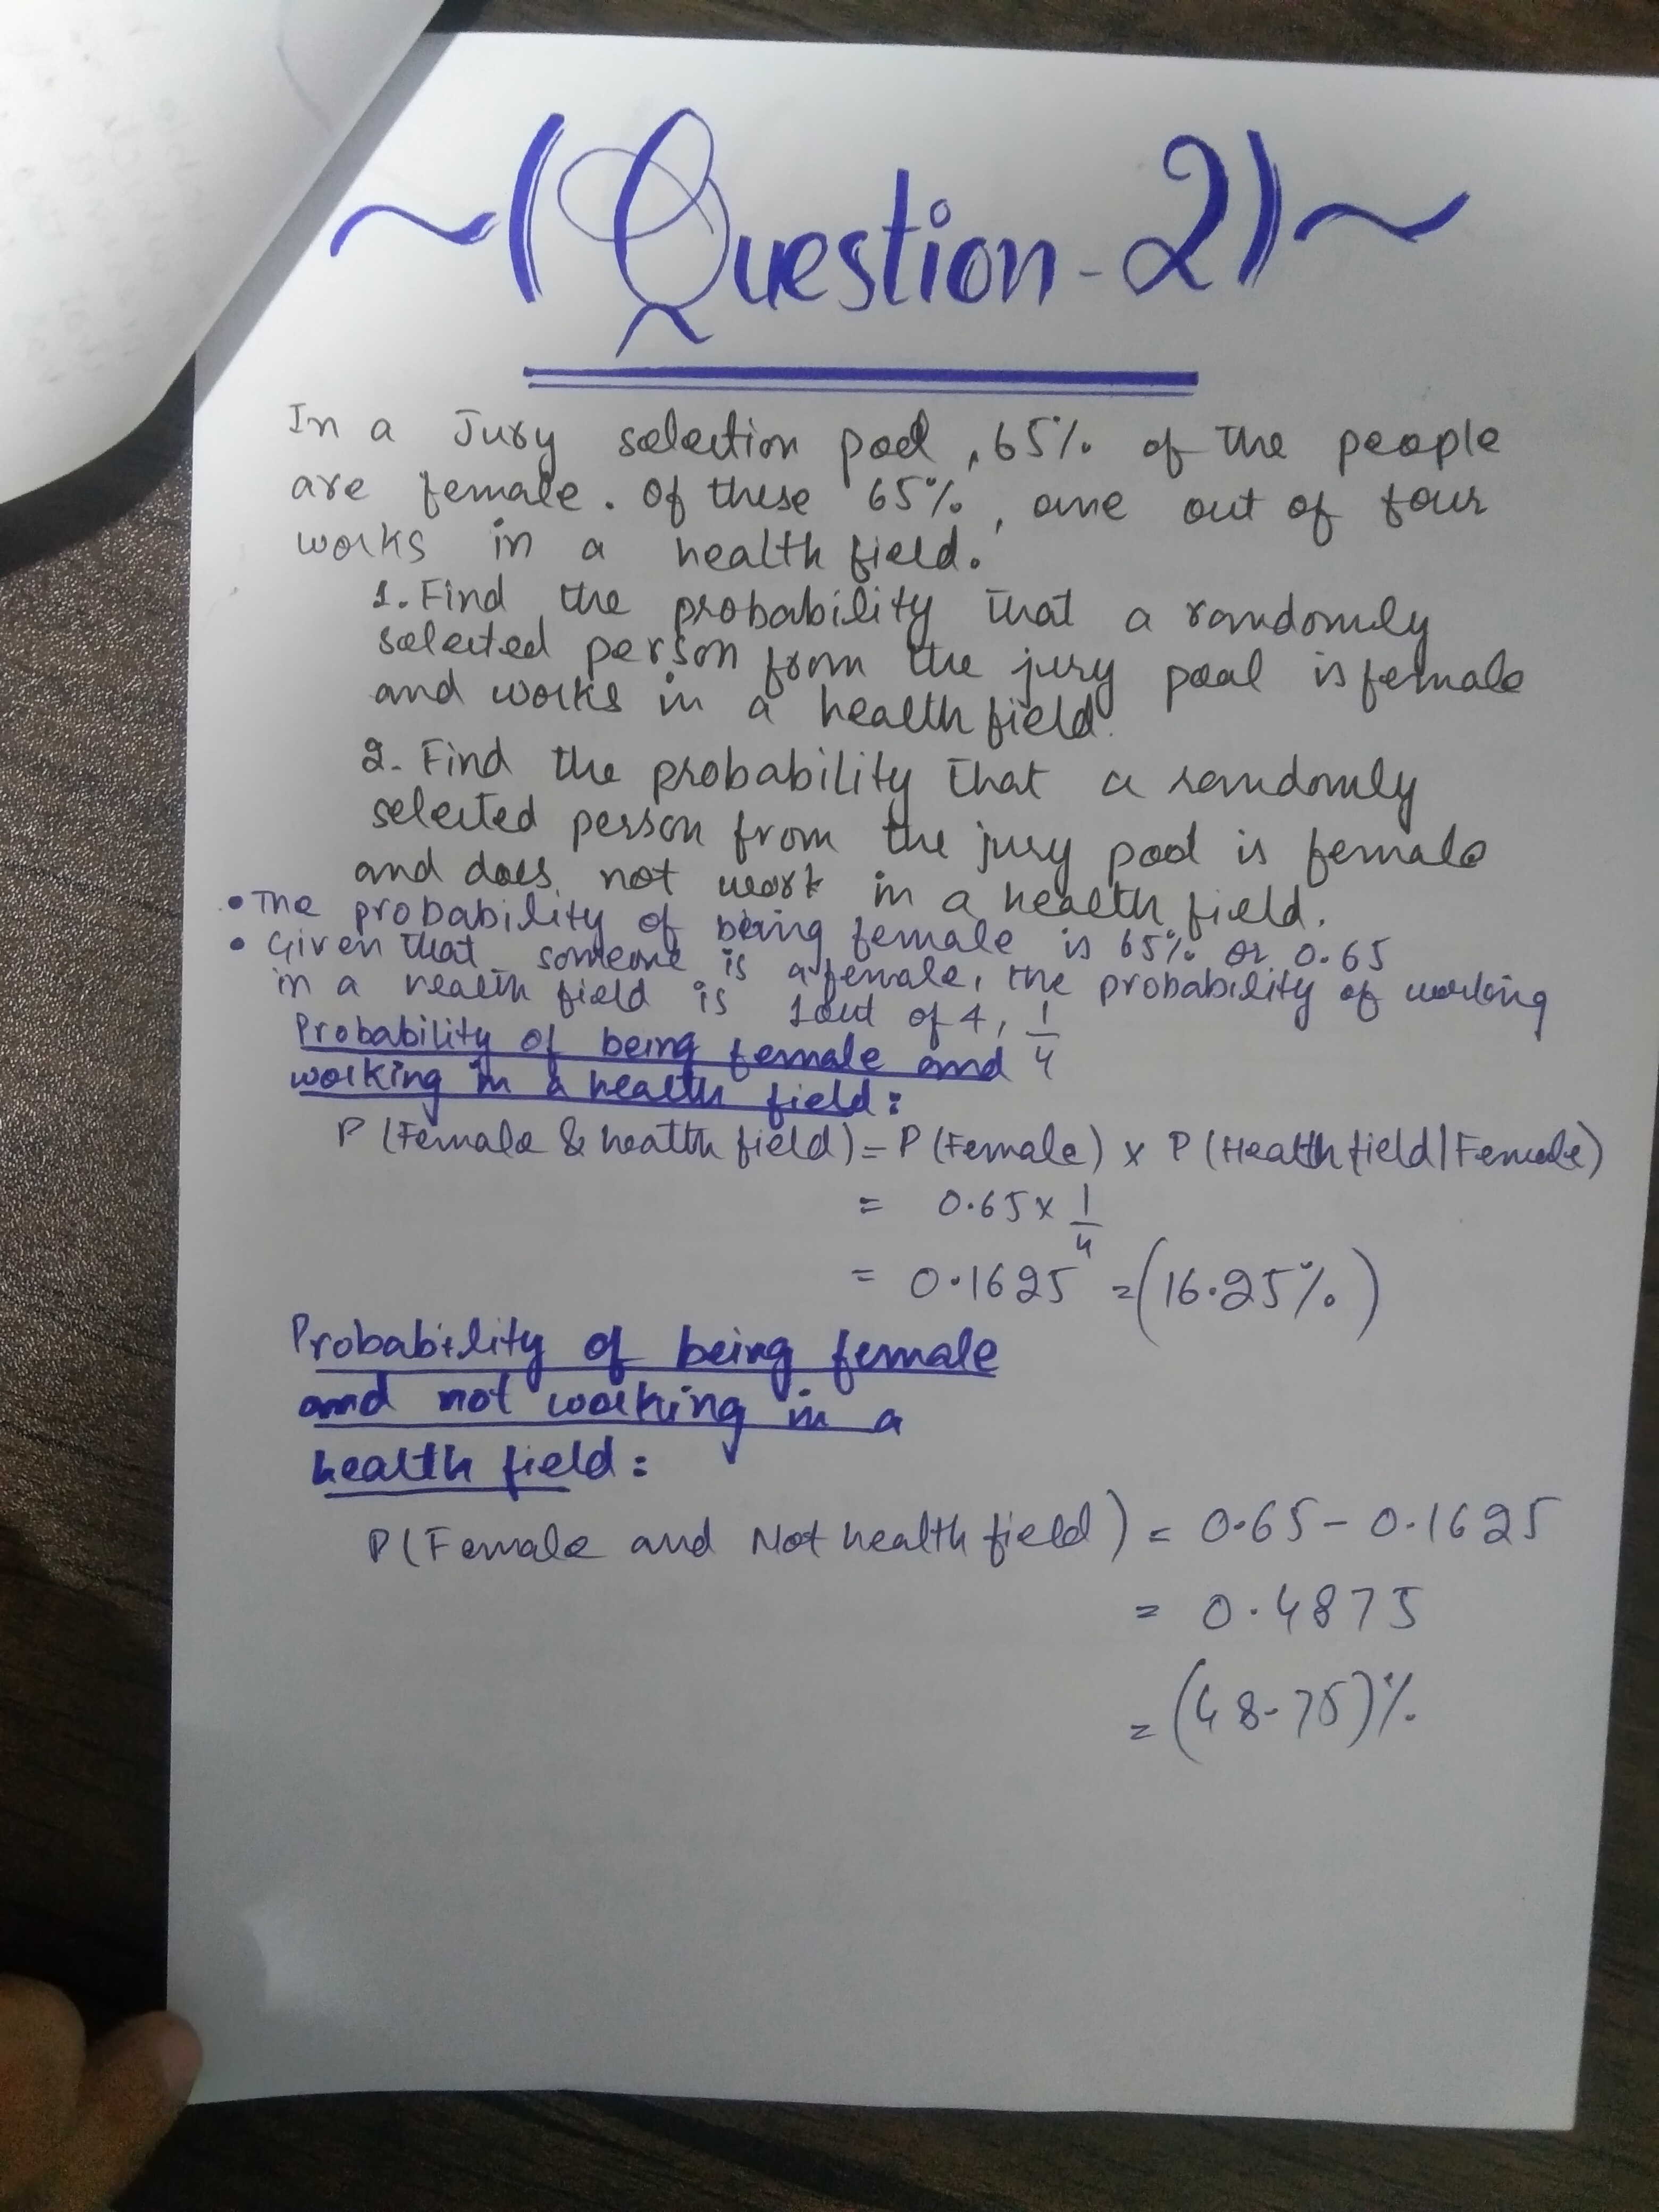 ~(Question-2)~
In a Jury selection pool, 65% of the people
are female. Of these 65%, one out of four
works in a health field.
1. Find the probability that a randomly
selected person from the jury pool is female
and works in a health field.
2. Find the probability that a randomly
selected person from the jury pool is female
and does not work in a health field.
• The probability of being female is 65% or 0.65
• Given that someone is a female, the probability of working
in a health field is 1 out of 4, 1/4
Probability of being female and
working in a health field:
P(Female & health field) = P(Female) x P(Health field|Female)
= 0.65 x 1/4
= 0.1625 = (16.25%)
Probability of being female
and not working in a
health field:
P(Female and Not health field) = 0.65 - 0.1625
= 0.4875
= (48.75)%